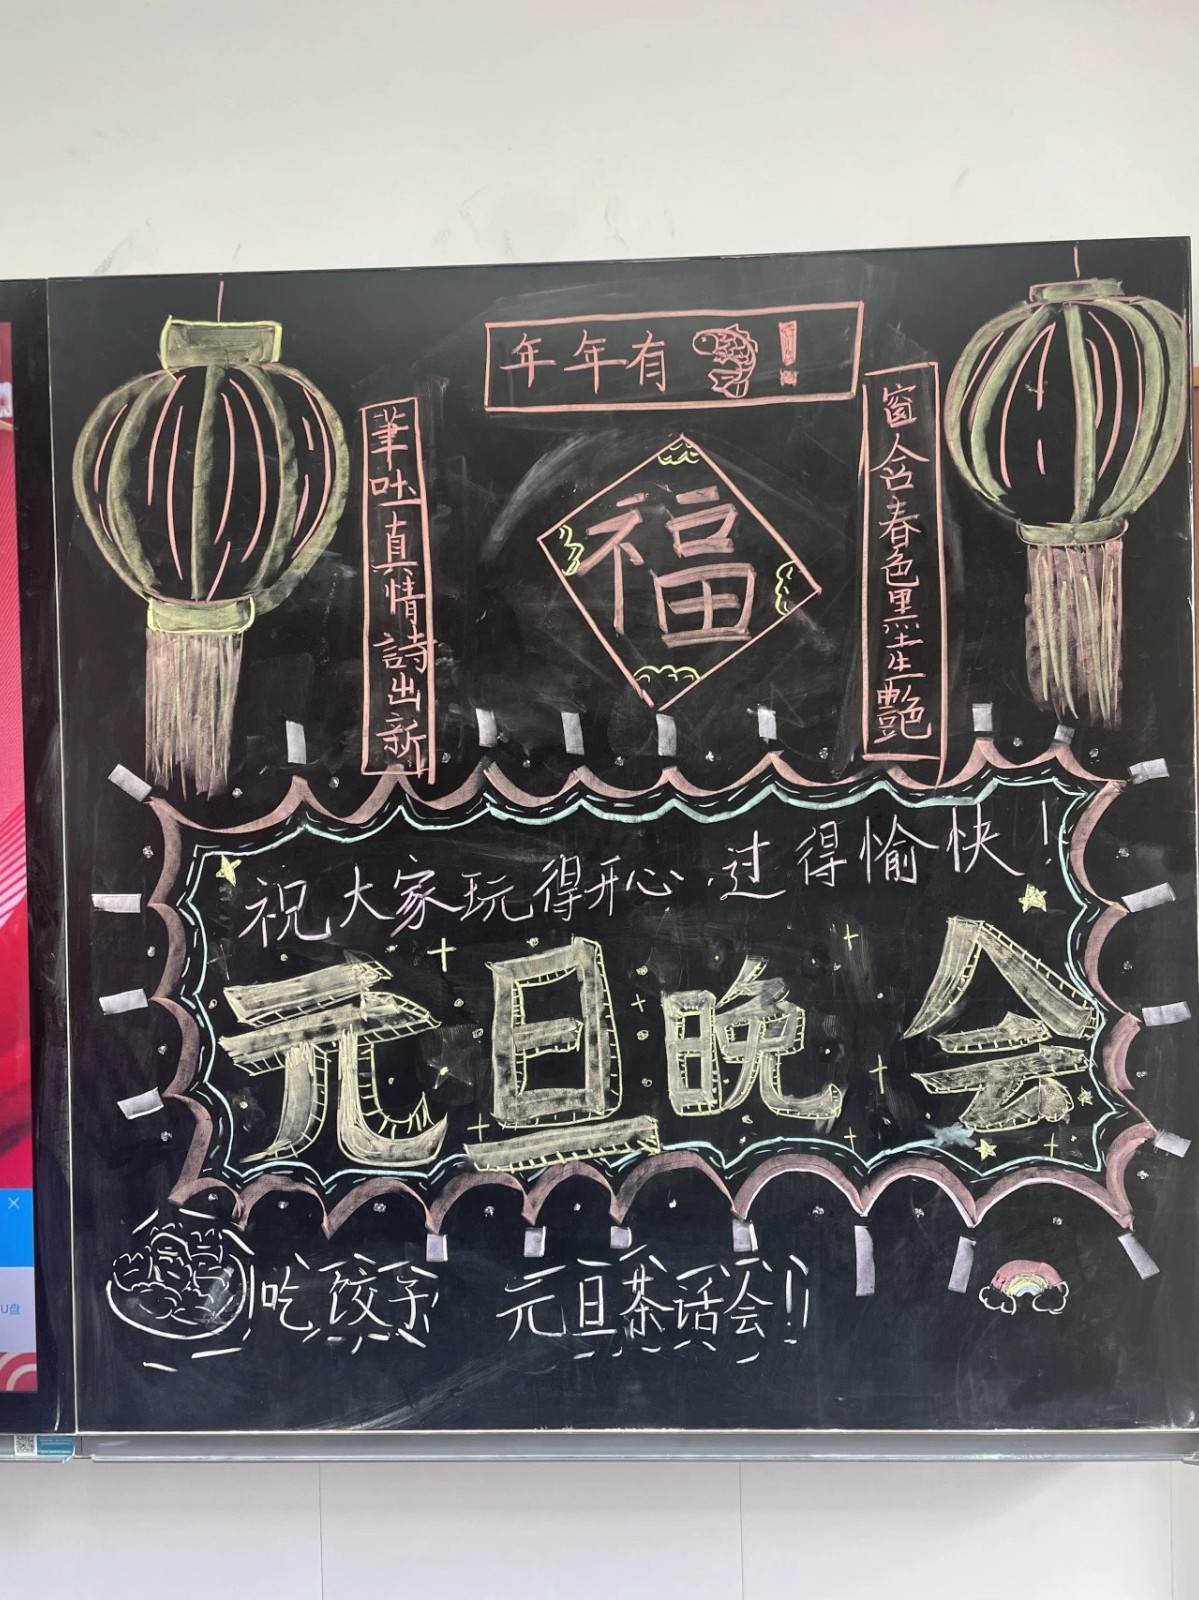 年年有！
窗含春色黑土生艷
筆吐真情詩出新
福
祝大家玩得开心，过得愉快！
元旦晚会
吃饺子 元旦茶话会！
U盘